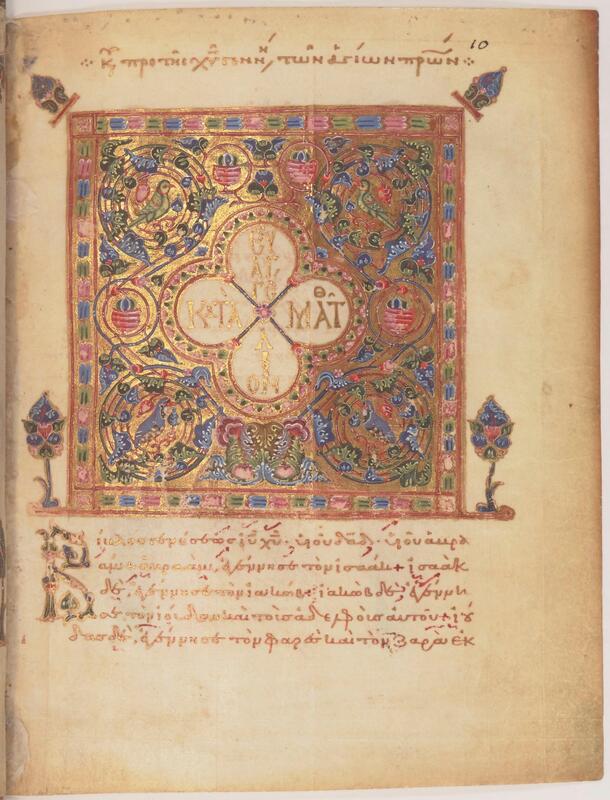 10
πρὸ τῆς χ͞υ γενν, τῶν ἁγίων πρ͞ων
ΕΥ
ΑΓ
ΓΕ
ΚΑΤΑ ΜΑΤΘ
ΛΙ
ΟΝ
Βίβλος γενέσεως ἰ͞υ χ͞υ· υἱοῦ δα͞δ· υἱοῦ ἀβρα
ἀμ· ἀβραὰμ, ἐγέννησε τὸν ἰσαάκ + ἰσαὰκ
δὲ, ἐγέννησε τὸν ἰακώβ· ἰακὼβ δὲ, ἐγέννη
σε τὸν ἰούδαν καὶ τοὺς ἀδελφοὺς αὐτοῦ + ἰού
δας δὲ, ἐγέννησε τὸν φαρὲς καὶ τὸν ζαρὰ ἐκ